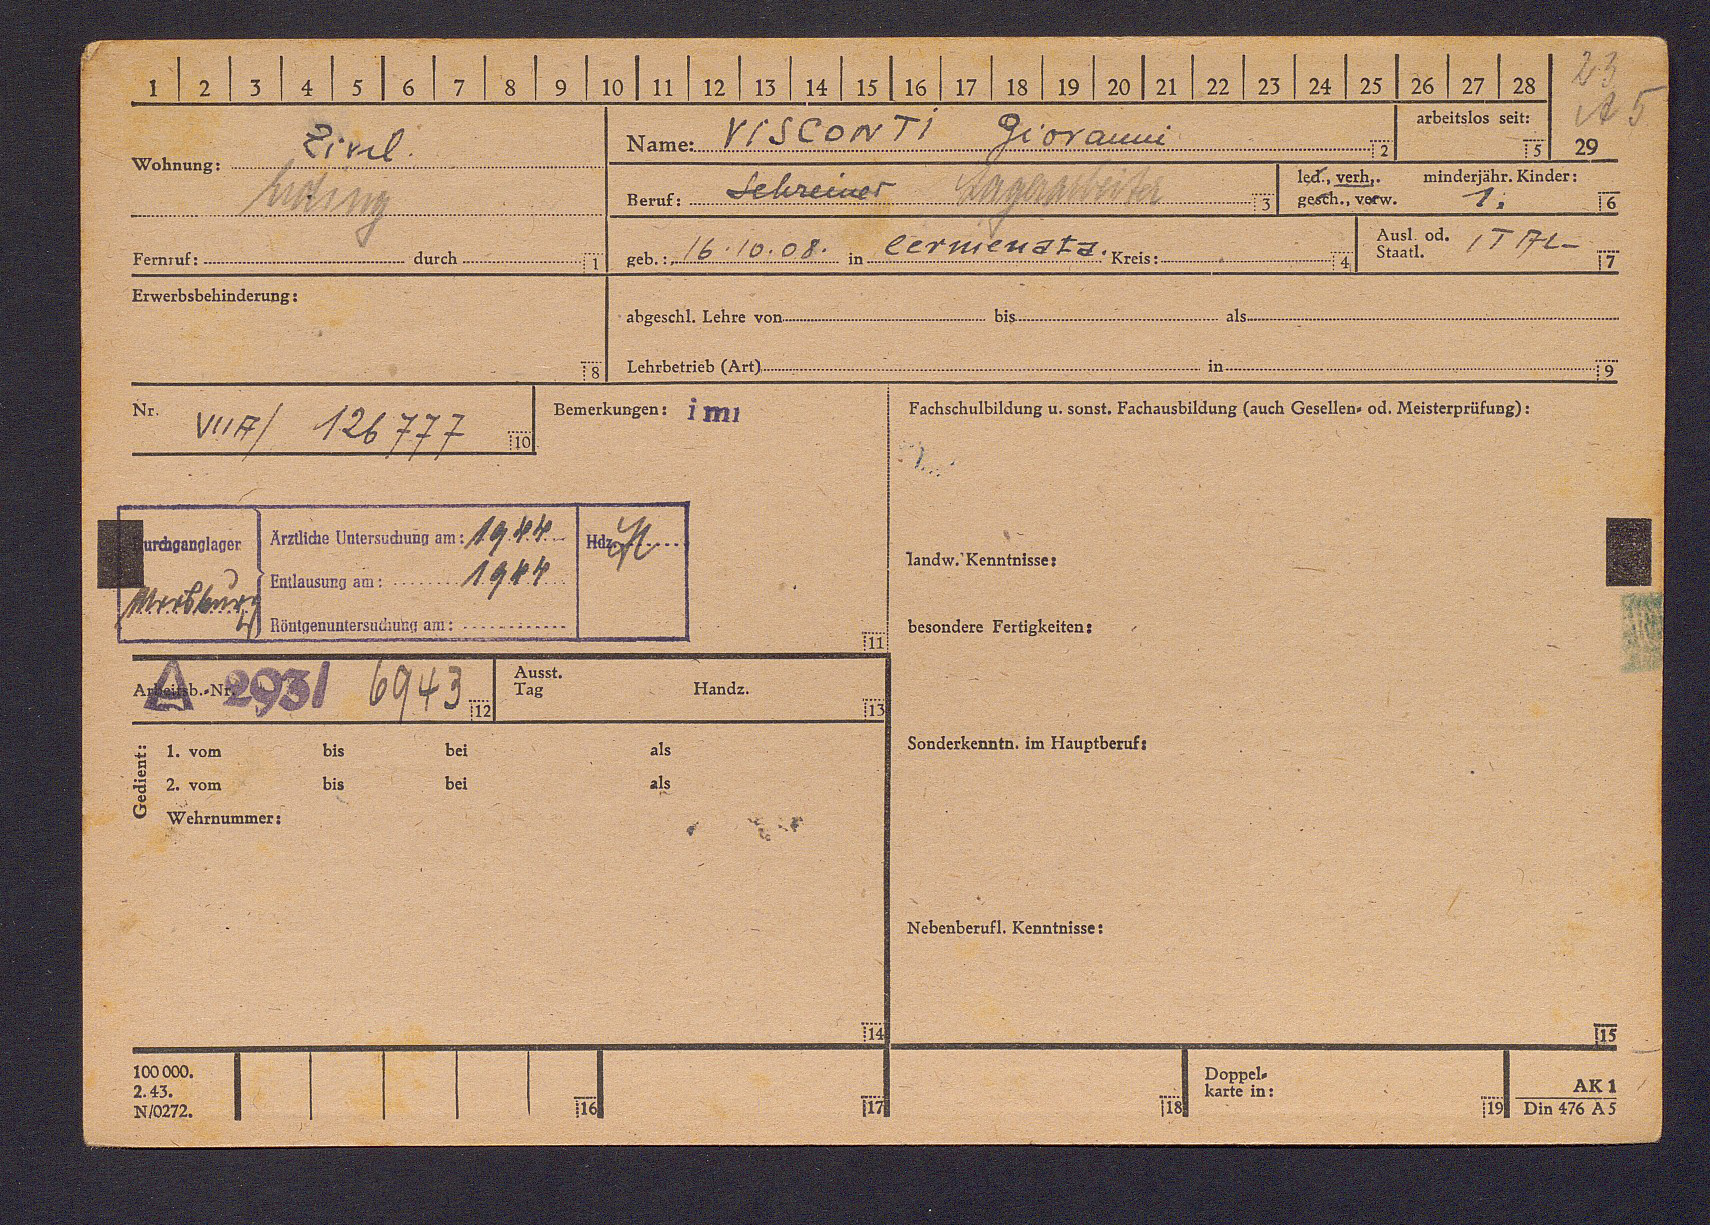 1 2 3 4 5 6 7 8 9 10 11 12 13 14 15 16 17 18 19 20 21 22 23 24 25 26 27 28
23
A 5
29
Wohnung: Zivil.
Erding
Name: VISCONTI Giovanni 2
arbeitslos seit:
5
Beruf: Schreiner Lagerarbeiter 3
led., verh., minderjähr. Kinder:
gesch., verw. 1. 6
Fernruf: durch 1
geb.: 16.10.08. in Cermenata. Kreis: 4
Ausl. od. ITAL
Staatl. 7
Erwerbsbehinderung:
8
abgeschl. Lehre von bis als
Lehrbetrieb (Art) in 9
Nr. VII A/ 126777 10
Bemerkungen: imi
Durchganglager
Ärztliche Untersuchung am: 1944
Entlausung am: 1944
Röntgenuntersuchung am:
Hdz.
11
Arbeitsb.-Nr. A 293/ 6943 12
Ausst.
Tag Handz.
13
Gedient:
1. vom bis bei als
2. vom bis bei als
Wehrnummer:
14
Fachschulbildung u. sonst. Fachausbildung (auch Gesellen- od. Meisterprüfung):
landw. Kenntnisse:
besondere Fertigkeiten:
Sonderkenntn. im Hauptberuf:
Nebenberufl. Kenntnisse:
15
100 000.
2. 43.
N/0272.
16
17
18
Doppel-
karte in:
19
AK 1
Din 476 A 5